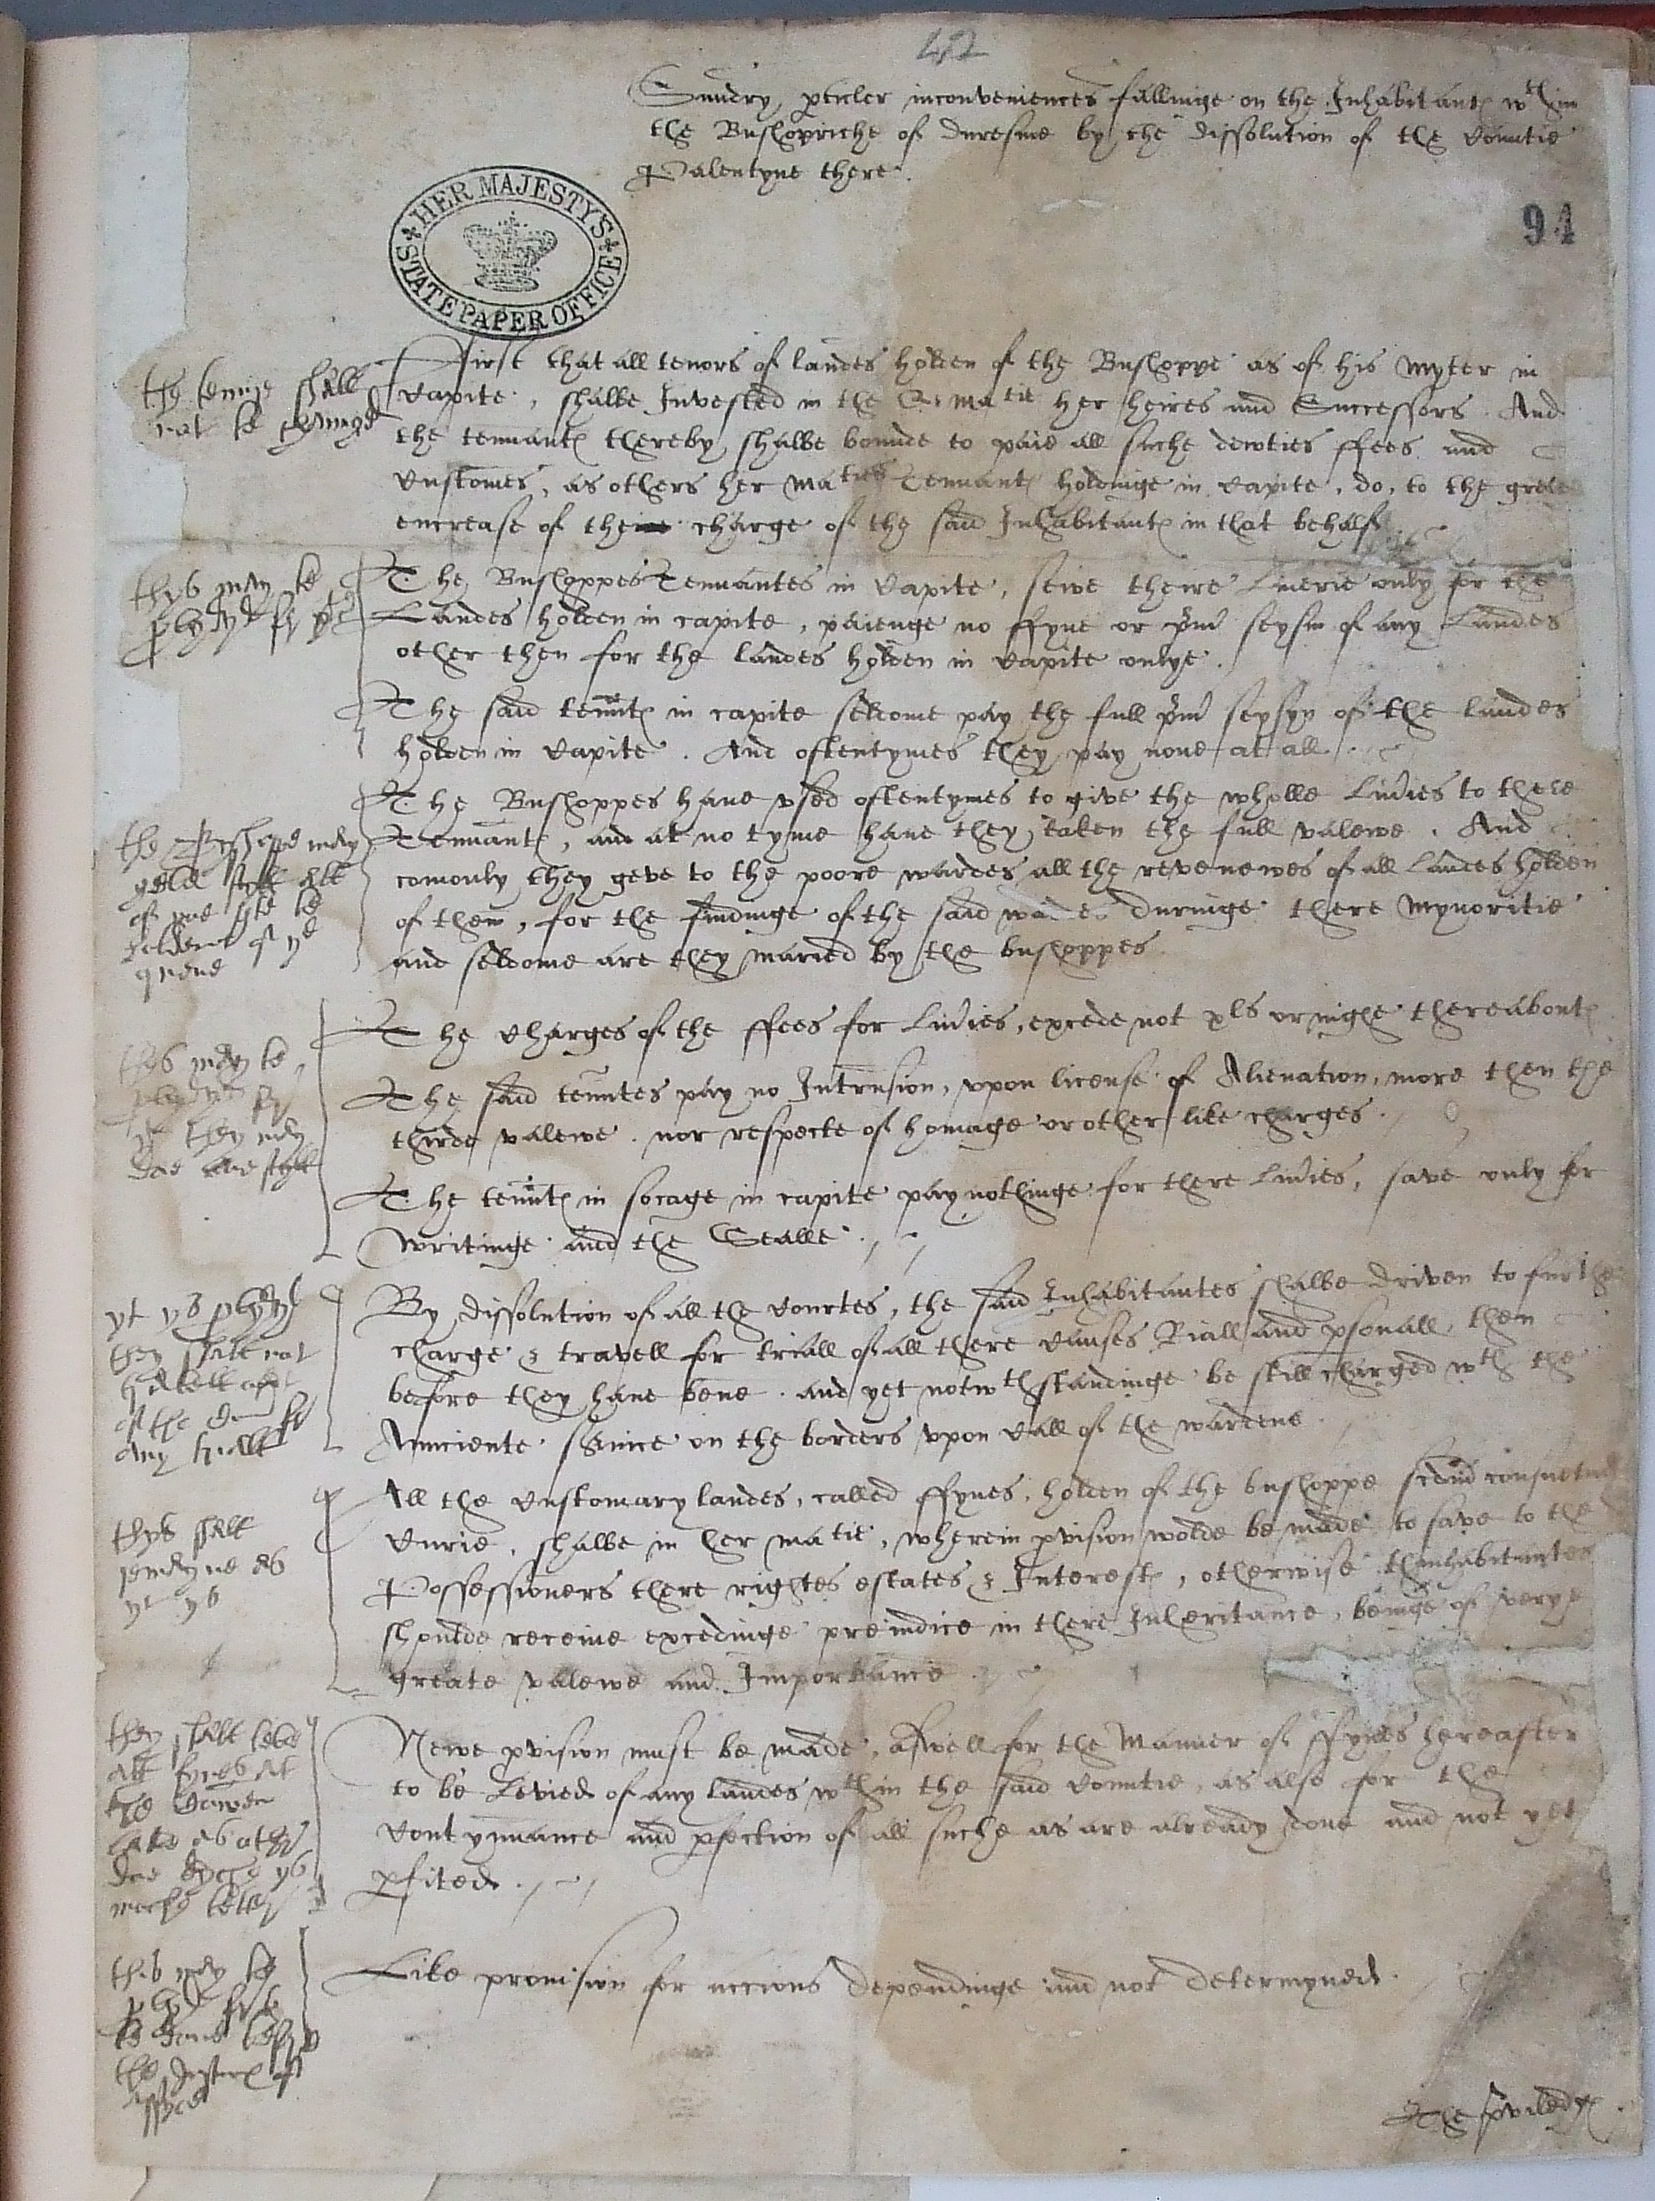 42
Sundry pticler inconveniences fallinge on the Inhabitantes wthin
the Bushopriche of duresme by the dissolution of the Countie
Palentyne there.
94
HER MAJESTY'S
STATE PAPER OFFICE
First that all tenors of landes holden of the Bushoppe as of his myter in
Capite, shalbe Invested in the Q: matie her heires and Successors. And
the tennantes thereby shalbe bounde to paie all suche dewties ffees and
Customes, as others her maties Tennantes holdinge in Capite, do, to the greate
encrease of the charge of the said Inhabitantes in that behalf.
The Bushoppes Tennantes in Capite, sewe theire Liuerie only for the
Landes holden in capite, paienge no ffyne or pm seysin of any Landes
other then for the landes holden in Capite onlye.
The said tenntes in capite seldome pay the full pm seysyn of the landes
holden in Capite. And oftentymes they pay none at all.
The Bushoppes haue vsed oftentymes to give the wholle Liuies to there
Tennantes, and at no tyme haue they taken the full valewe. And
comonly they geve to the poore wardes all the revenewes of all Landes holden
of them, for the findinge of the said wardes duringe there mynoritie
and seldome are they maried by the bushoppes.
The Charges of the ffees for Liuies, excede not xls or nighe thereaboutes
The said tenntes pay no Intrusion, vpon license of Alienation, more then the
thirde valewe. nor respecte of homage or other like charges.
The tenntes in socage in capite pay nothinge for there Liuies, save only for
writinge and the Sealle.
By dissolution of all the Courtes, the said Inhabitantes shalbe driven to further
charge & travell for triall of all there Causes Riall and psonall, then
before they haue bene. and yet notwthstandinge be still charged wth the
Aunciente service on the borders vpon Call of the wardene.
All the Customary landes, called ffynes, holden of the bushoppe scdm consuetud
Curie, shalbe in her matie, wherein pvision wolde be made to save to the
Possessioners there rightes estates & Interestes, otherwise thinhabitantes
shoulde receive excedinge preiudice in there Inheritance, beinge of verye
greate valewe and Importance.
Newe pvision must be made, aswell for the Manner of ffynes hereafter
to be Levied of any landes wthin the said Countie, as also for the
Contynuance and pfection of all suche as are already done and not yet
pfited.
Like provision for accions dependinge and not determyned.
the shall
not be
thys may be
the Bishope may
of
quene
thys may be
they may
doe
yt ys
they shall not
of the
any
thys shall
remayne as
yt ys
they shall
all fynes at
the
doe
moche better
this may be
the
The